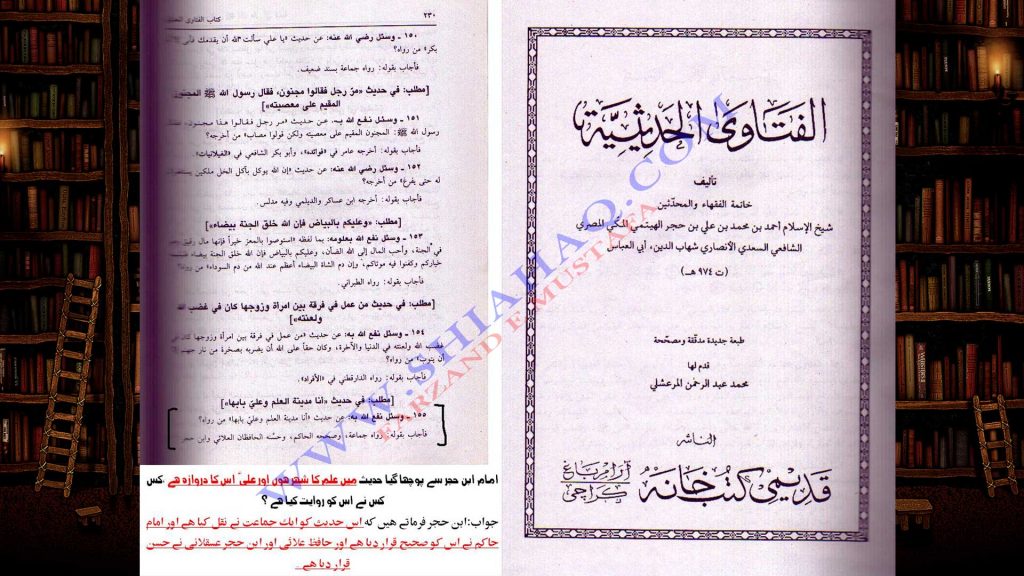 ٢٣٠
كتاب الفتاوى
١٥٠ ـ وسئل رضي الله عنه: عن حديث «يا علي سألت الله أن يقدمك فأبى
بكر» من رواه؟
فأجاب بقوله: رواه جماعة بسند ضعيف.
[مطلب: في حديث «مرّ رجل فقالوا مجنون، فقال رسول الله ﷺ المجنون
المقيم على معصيته»]
١٥١ ـ وسئل نفع الله به: عن حديث «مر رجل فقالوا هذا مجنون،
رسول الله ﷺ: المجنون المقيم على معصيته ولكن قولوا مصاب» من أخرجه؟
فأجاب بقوله: أخرجه عامر في «فوائده»، وأبو بكر الشافعي في «الغيلانيات»
١٥٢ ـ وسئل رضي الله عنه: عن حديث «إن الله يوكل بآكل الخل ملكين يستغفران
له حتى يفرغ» من أخرجه؟
فأجاب بقوله: أخرجه ابن عساكر والديلمي وفيه مدلس.
[مطلب: «وعليكم بالبياض فإن الله خلق الجنة بيضاء»]
١٥٣ ـ وسئل نفع الله بعلومه: بما لفظه «استوصوا بالمعز خيراً فإنها مال رقيق
في الجنة، وأحب المال إلى الله الضأن، وعليكم بالبياض فإن الله خلق الجنة بيضاء
خياركم وكفنوا فيه موتاكم، وإن دم الشاة البيضاء أعظم عند الله من دم السوداء» من رواه؟
فأجاب بقوله: رواه الطبراني.
[مطلب: في حديث من عمل في فرقة بين امرأة وزوجها كان في غضب الله
ولعنته»]
١٥٤ ـ وسئل نفع الله به: عن حديث «من عمل في فرقة بين امرأة وزوجها كان
غضب الله ولعنته في الدنيا والآخرة، وكان حقاً على الله أن يضربه بصخرة من نار جهنم
أن يتوب» من رواه؟
فأجاب بقوله: رواه الدارقطني في «الأفراد».
[مطلب: في حديث «أنا مدينة العلم وعليّ بابها»]
١٥٥ ـ وسئل نفع الله به: عن حديث «أنا مدينة العلم وعليّ بابها» من رواه؟
فأجاب بقوله: رواه جماعة، وصححه الحاكم، وحسّنه الحافظان العلائي وابن حجر
امام ابن حجر سے پوچھا گیا حدیث میں علم کا شهر هوں اور علیؑ اس کا دروازہ هے .کس
کس نے اس کو روایت کیا هے ؟
جواب:ابن حجر فرماتے هیں که اس حدیث کو ایک جماعت نے نقل کیا هے اور امام
حاکم نے اس کو صحیح قرار دیا هے اور حافظ علائی اور ابن حجر عسقلانی نے حسن
قرار دیا هے
الفتاوى الحديثية
تأليف
خاتمة الفقهاء والمحدثين
شيخ الإسلام أحمد بن محمد بن علي بن حجر الهيتمي المكي المصري
الشافعي السعدي الأنصاري شهاب الدين، أبي العباس
(ت ٩٧٤ هـ)
طبعة جديدة مدققة ومصححة
قدم لها
محمد عبد الرحمن المرعشلي
الناشر
قديمي كتب خانه
آرام باغ
كراچی
WWW.SHIAHAQ.COM
FARZAND E MUSTAFA